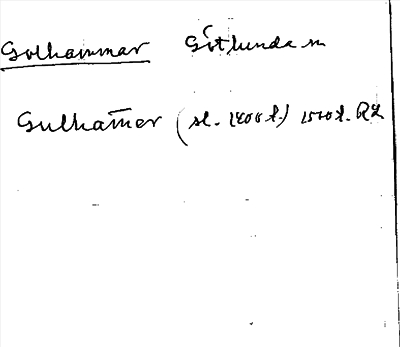 Golhammar Götlunda sn
Gulham̄er (sl. 1400 t.) 1540 t. RZ